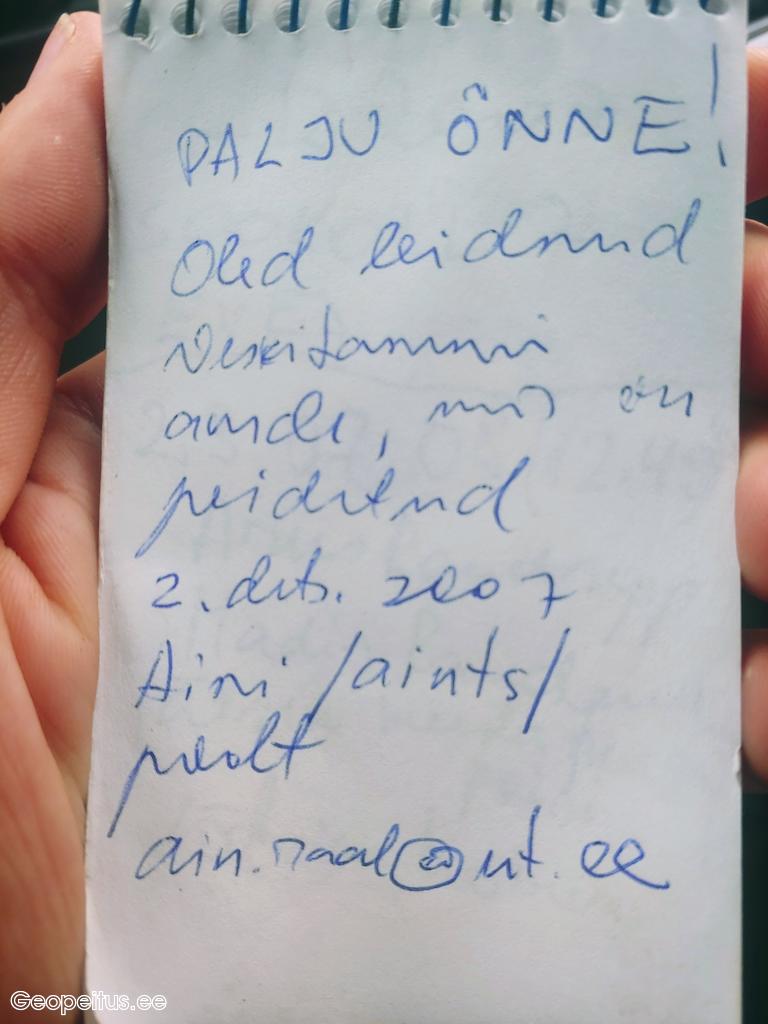 PALJU ÕNNE!
Oled leidnud
Veskitammi
aarde, mis on
peidetud
2. dets. 2007
Aini /aints/
poolt
ain.raal@ut.ee
Geopeitus.ee